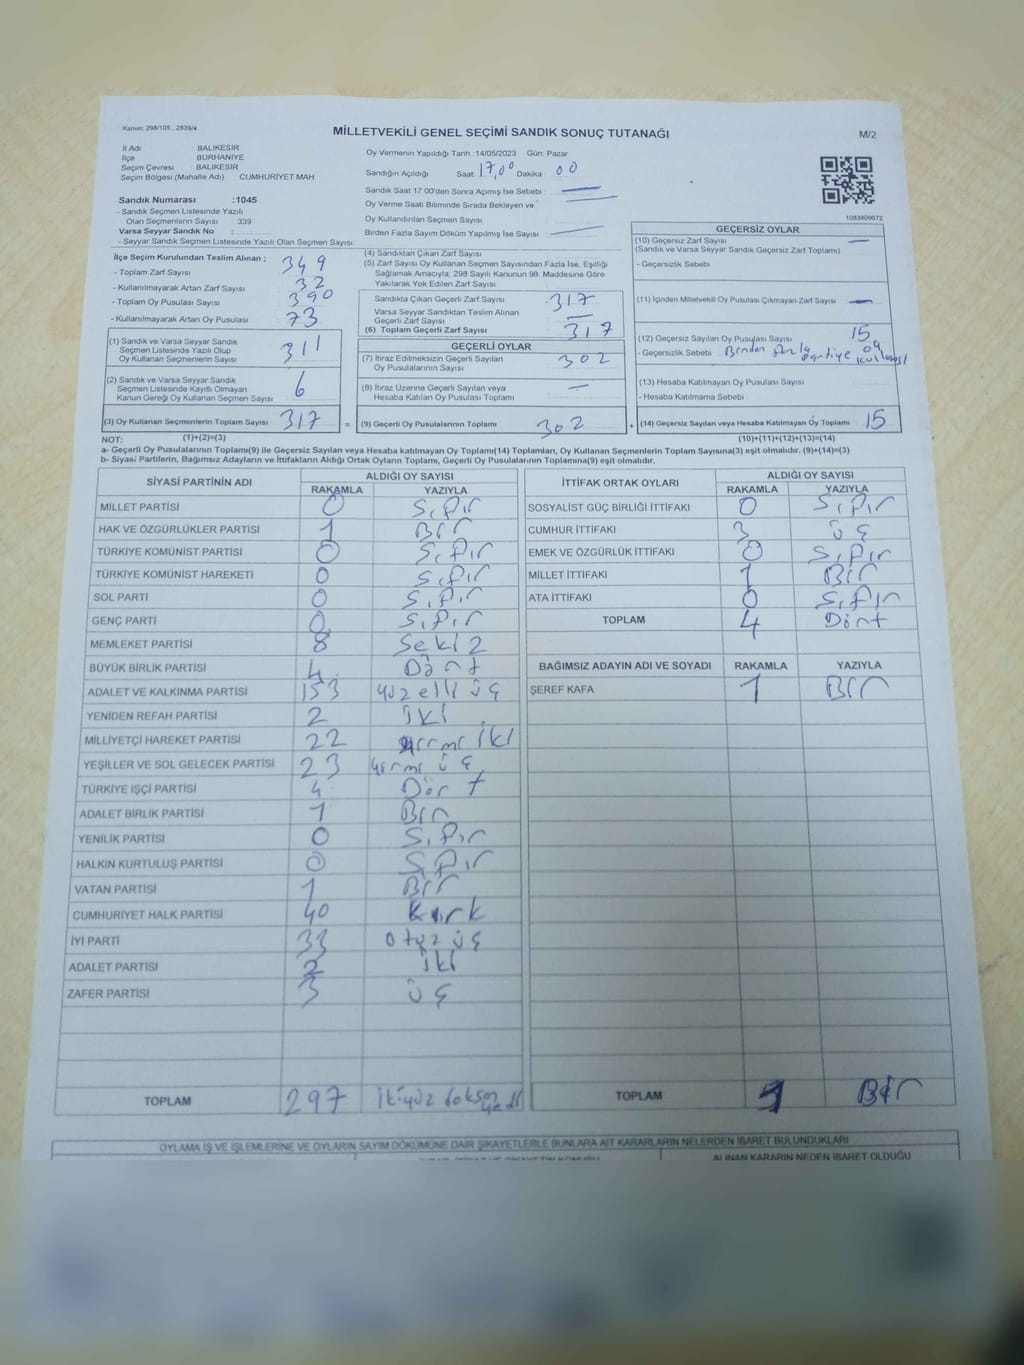 Kanun: 298/105 , 2839/4
MİLLETVEKİLİ GENEL SEÇİMİ SANDIK SONUÇ TUTANAĞI
M/2
İl Adı BALIKESİR
İlçe BURHANİYE
Seçim Çevresi BALIKESİR
Seçim Bölgesi (Mahalle Adı) : CUMHURİYET MAH
Sandık Numarası :1045
- Sandık Seçmen Listesinde Yazılı
Olan Seçmenlerin Sayısı : 339
Varsa Seyyar Sandık No :
- Seyyar Sandık Seçmen Listesinde Yazılı Olan Seçmen Sayısı
Oy Vermenin Yapıldığı Tarih : 14/05/2023 Gün: Pazar
Sandığın Açıldığı Saat: 17,00 Dakika : 00
Sandık Saat 17:00'den Sonra Açımış İse Sebebi :
Oy Verme Saati Bitiminde Sırada Bekleyen ve
Oy Kullandırılan Seçmen Sayısı
Birden Fazla Sayım Döküm Yapılmış İse Sayısı
1083809072
İlçe Seçim Kurulundan Teslim Alınan ;
- Toplam Zarf Sayısı 349
- Kullanılmayarak Artan Zarf Sayısı 32
- Toplam Oy Pusulası Sayısı 390
- Kullanılmayarak Artan Oy Pusulası 73
(1) Sandık ve Varsa Seyyar Sandık
Seçmen Listesinde Yazılı Olup
Oy Kullanan Seçmenlerin Sayısı 311
(2) Sandık ve Varsa Seyyar Sandık
Seçmen Listesinde Kayıtlı Olmayan
Kanun Gereği Oy Kullanan Seçmen Sayısı 6
(3) Oy Kullanan Seçmenlerin Toplam Sayısı 317 =
(4) Sandıktan Çıkan Zarf Sayısı
(5) Zarf Sayısı Oy Kullanan Seçmen Sayısından Fazla İse, Eşitliği
Sağlamak Amacıyla, 298 Sayılı Kanunun 98. Maddesine Göre
Yakılarak Yok Edilen Zarf Sayısı
Sandıkta Çıkan Geçerli Zarf Sayısı 317
Varsa Seyyar Sandıktan Teslim Alınan
Geçerli Zarf Sayısı —
(6) Toplam Geçerli Zarf Sayısı 317
GEÇERLİ OYLAR
(7) İtiraz Edilmeksizin Geçerli Sayılan
Oy Pusulalarının Sayısı 302
(8) İtiraz Üzerine Geçerli Sayılan veya
Hesaba Katılan Oy Pusulası Toplamı —
(9) Geçerli Oy Pusulalarının Toplamı 302 +
GEÇERSİZ OYLAR
(10) Geçersiz Zarf Sayısı —
(Sandık ve Varsa Seyyar Sandık Geçersiz Zarf Toplamı)
- Geçersizlik Sebebi
(11) İçinden Milletvekili Oy Pusulası Çıkmayan Zarf Sayısı —
(12) Geçersiz Sayılan Oy Pusulası Sayısı 15
- Geçersizlik Sebebi Birden fazla partiye oy
(13) Hesaba Katılmayan Oy Pusulası Sayısı
- Hesaba Katılmama Sebebi
(14) Geçersiz Sayılan veya Hesaba Katılmayan Oy Toplamı 15
NOT: (1)+(2)=(3)
(10)+(11)+(12)+(13)=(14)
a- Geçerli Oy Pusulalarının Toplamı(9) ile Geçersiz Sayılan veya Hesaba katılmayan Oy Toplamı(14) Toplamları, Oy Kullanan Seçmenlerin Toplam Sayısına(3) eşit olmalıdır. (9)+(14)=(3)
b- Siyasi Partilerin, Bağımsız Adayların ve İttifakların Aldığı Ortak Oyların Toplamı, Geçerli Oy Pusulalarının Toplamına(9) eşit olmalıdır.
SİYASİ PARTİNİN ADI ALDIĞI OY SAYISI
RAKAMLA YAZIYLA
MİLLET PARTİSİ 0 Sıfır
HAK VE ÖZGÜRLÜKLER PARTİSİ 1 Bir
TÜRKİYE KOMÜNİST PARTİSİ 0 Sıfır
TÜRKİYE KOMÜNİST HAREKETİ 0 Sıfır
SOL PARTİ 0 Sıfır
GENÇ PARTİ 0 Sıfır
MEMLEKET PARTİSİ 8 Sekiz
BÜYÜK BİRLİK PARTİSİ 4 Dört
ADALET VE KALKINMA PARTİSİ 153 yüz elli üç
YENİDEN REFAH PARTİSİ 2 iki
MİLLİYETÇİ HAREKET PARTİSİ 22 yirmi iki
YEŞİLLER VE SOL GELECEK PARTİSİ 23 yirmi üç
TÜRKİYE İŞÇİ PARTİSİ 4 Dört
ADALET BİRLİK PARTİSİ 1 Bir
YENİLİK PARTİSİ 0 Sıfır
HALKIN KURTULUŞ PARTİSİ 0 Sıfır
VATAN PARTİSİ 1 Bir
CUMHURİYET HALK PARTİSİ 40 Kırk
İYİ PARTİ 33 otuz üç
ADALET PARTİSİ 2 iki
ZAFER PARTİSİ 3 üç
TOPLAM 297 ikiyüz doksan yedi
İTTİFAK ORTAK OYLARI ALDIĞI OY SAYISI
RAKAMLA YAZIYLA
SOSYALİST GÜÇ BİRLİĞİ İTTİFAKI 0 Sıfır
CUMHUR İTTİFAKI 3 üç
EMEK VE ÖZGÜRLÜK İTTİFAKI 0 Sıfır
MİLLET İTTİFAKI 1 Bir
ATA İTTİFAKI 0 Sıfır
TOPLAM 4 Dört
BAĞIMSIZ ADAYIN ADI VE SOYADI RAKAMLA YAZIYLA
ŞEREF KAFA 1 Bir
TOPLAM 1 Bir
OYLAMA İŞ VE İŞLEMLERİNE VE OYLARIN SAYIM DÖKÜMÜNE DAİR ŞİKAYETLERLE BUNLARA AİT KARARLARIN NELERDEN İBARET BULUNDUKLARI
ALINAN KARARIN NEDEN İBARET OLDUĞU